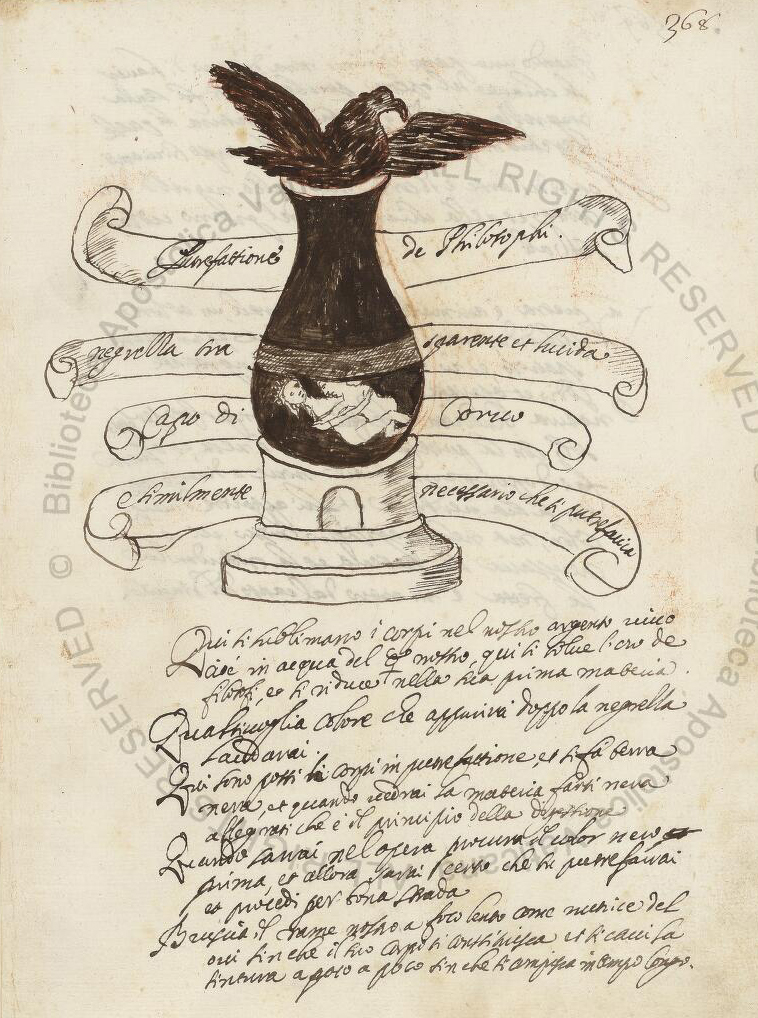 368.
Putrefattione de Philosophi.
negrella tra sparente et lucida
Capo di Corvo
e similmente necessario che si putrefaccia
Qui si sublimano i corpi nel nostro argento vivo
cioè in acqua del ☿ nostro, qui si solve l'oro de
filosofi, et si riduce nella sua prima materia.
Qualsivoglia colore che apparirà doppo la negrella
laudarai.
Qui sono posti li corpi in putrefattione et si fà terra
nera, et quando vedrai la materia farsi nera
allegrati che è il principio della digestione
Quando sarai nel opera procura il color nero
prima, et allora sarai certo che si putrefarrai
et procedi per bona strada
Bruscia il rame nostro a foco lento come nutrice del
ovi sin che il suo corpo si constituisca et si cacci la
tintura a poco a poco sin che si empisca in tempo longo.
© Biblioteca Apostolica Vaticana ALL RIGHTS RESERVED